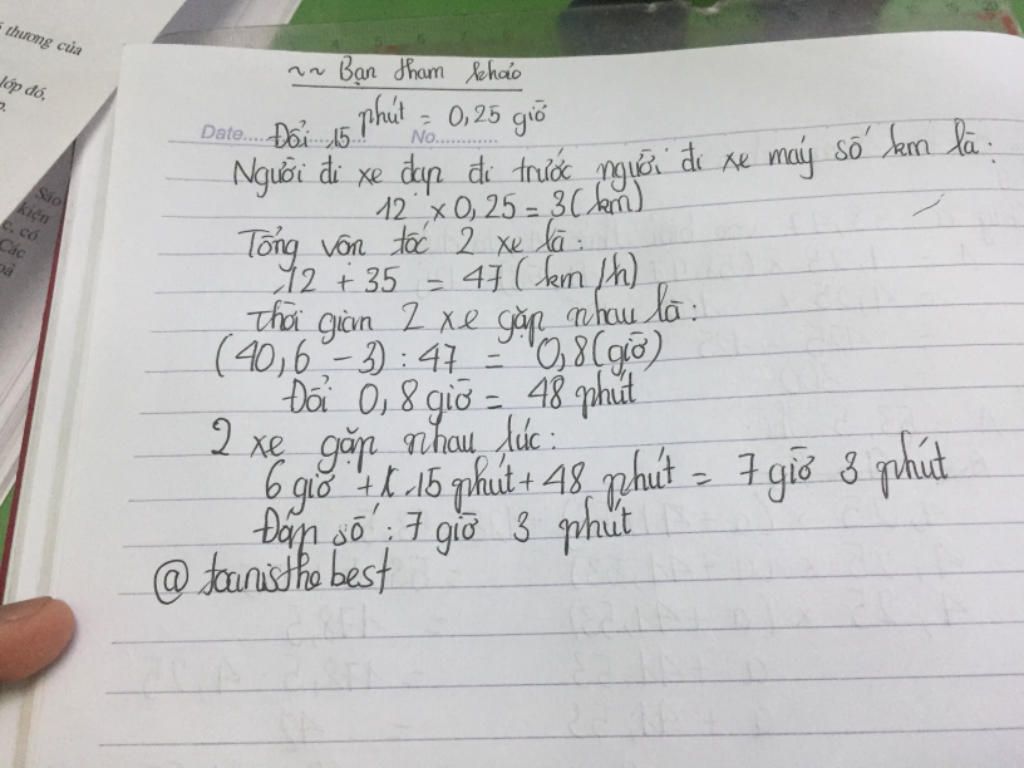 thương của
lớp đó,
~~ Bạn tham khảo
Date.... Đổi 15 phút = 0,25 giờ
No............
Người đi xe đạp đi trước người đi xe máy số km là:
12 x 0,25 = 3 (km)
Tổng vân tốc 2 xe là:
12 + 35 = 47 (km/h)
Thời gian 2 xe gặp nhau là:
(40,6 - 3) : 47 = 0,8 (giờ)
Đổi 0,8 giờ = 48 phút
2 xe gặp nhau lúc:
6 giờ + 15 phút + 48 phút = 7 giờ 3 phút
Đáp số : 7 giờ 3 phút
@toanisthebest
Sáo
kiện
c, có
Các